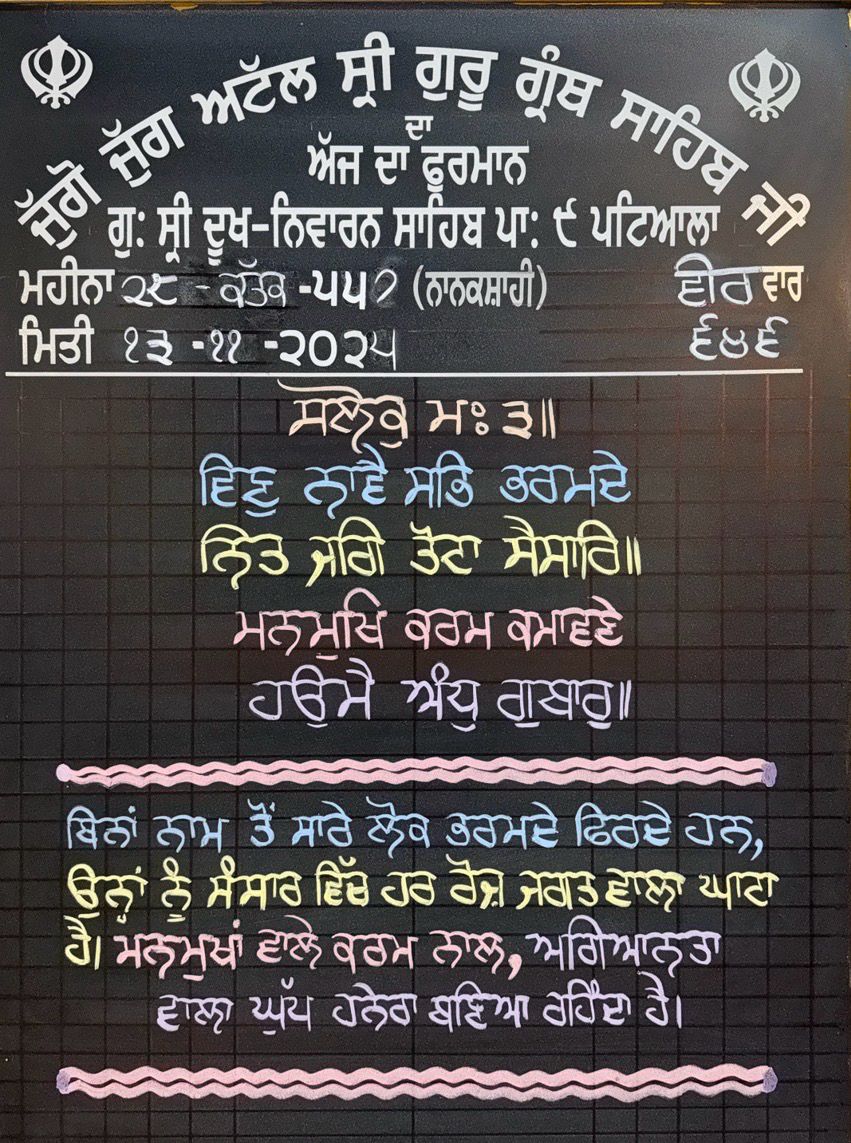 ਜੁੱਗੋ ਜੁੱਗ ਅਟੱਲ ਸ੍ਰੀ ਗੁਰੂ ਗ੍ਰੰਥ ਸਾਹਿਬ ਜੀ
ਦਾ
ਅੱਜ ਦਾ ਫੂਰਮਾਨ
ਗੁ: ਸ੍ਰੀ ਦੂਖ-ਨਿਵਾਰਨ ਸਾਹਿਬ ਪਾ: ੯ ਪਟਿਆਲਾ
ਮਹੀਨਾ ੨੮ - ਕੱਤਕ -੫੫੭ (ਨਾਨਕਸ਼ਾਹੀ) ਵੀਰ ਵਾਰ
ਮਿਤੀ ੧੩ -੧੧ -੨੦੨੫ ੬੪੬
ਸਲੋਕੁ ਮਃ ੩॥
ਵਿਣੁ ਨਾਵੈ ਸਭਿ ਭਰਮਦੇ
ਨਿਤ ਜਗਿ ਤੋਟਾ ਸੈਸਾਰਿ॥
ਮਨਮੁਖਿ ਕਰਮ ਕਮਾਵਣੇ
ਹਉਮੈ ਅੰਧੁ ਗੁਬਾਰੁ॥
ਬਿਨਾਂ ਨਾਮ ਤੋਂ ਸਾਰੇ ਲੋਕ ਭਰਮਦੇ ਫਿਰਦੇ ਹਨ,
ਉਨ੍ਹਾਂ ਨੂੰ ਸੰਸਾਰ ਵਿੱਚ ਹਰ ਰੋਜ਼ ਜਗਤ ਵਾਲਾ ਘਾਟਾ
ਹੈ। ਮਨਮੁਖਾਂ ਵਾਲੇ ਕਰਮ ਨਾਲ, ਅਗਿਆਨਤਾ
ਵਾਲਾ ਘੁੱਪ ਹਨੇਰਾ ਬਣਿਆ ਰਹਿੰਦਾ ਹੈ।